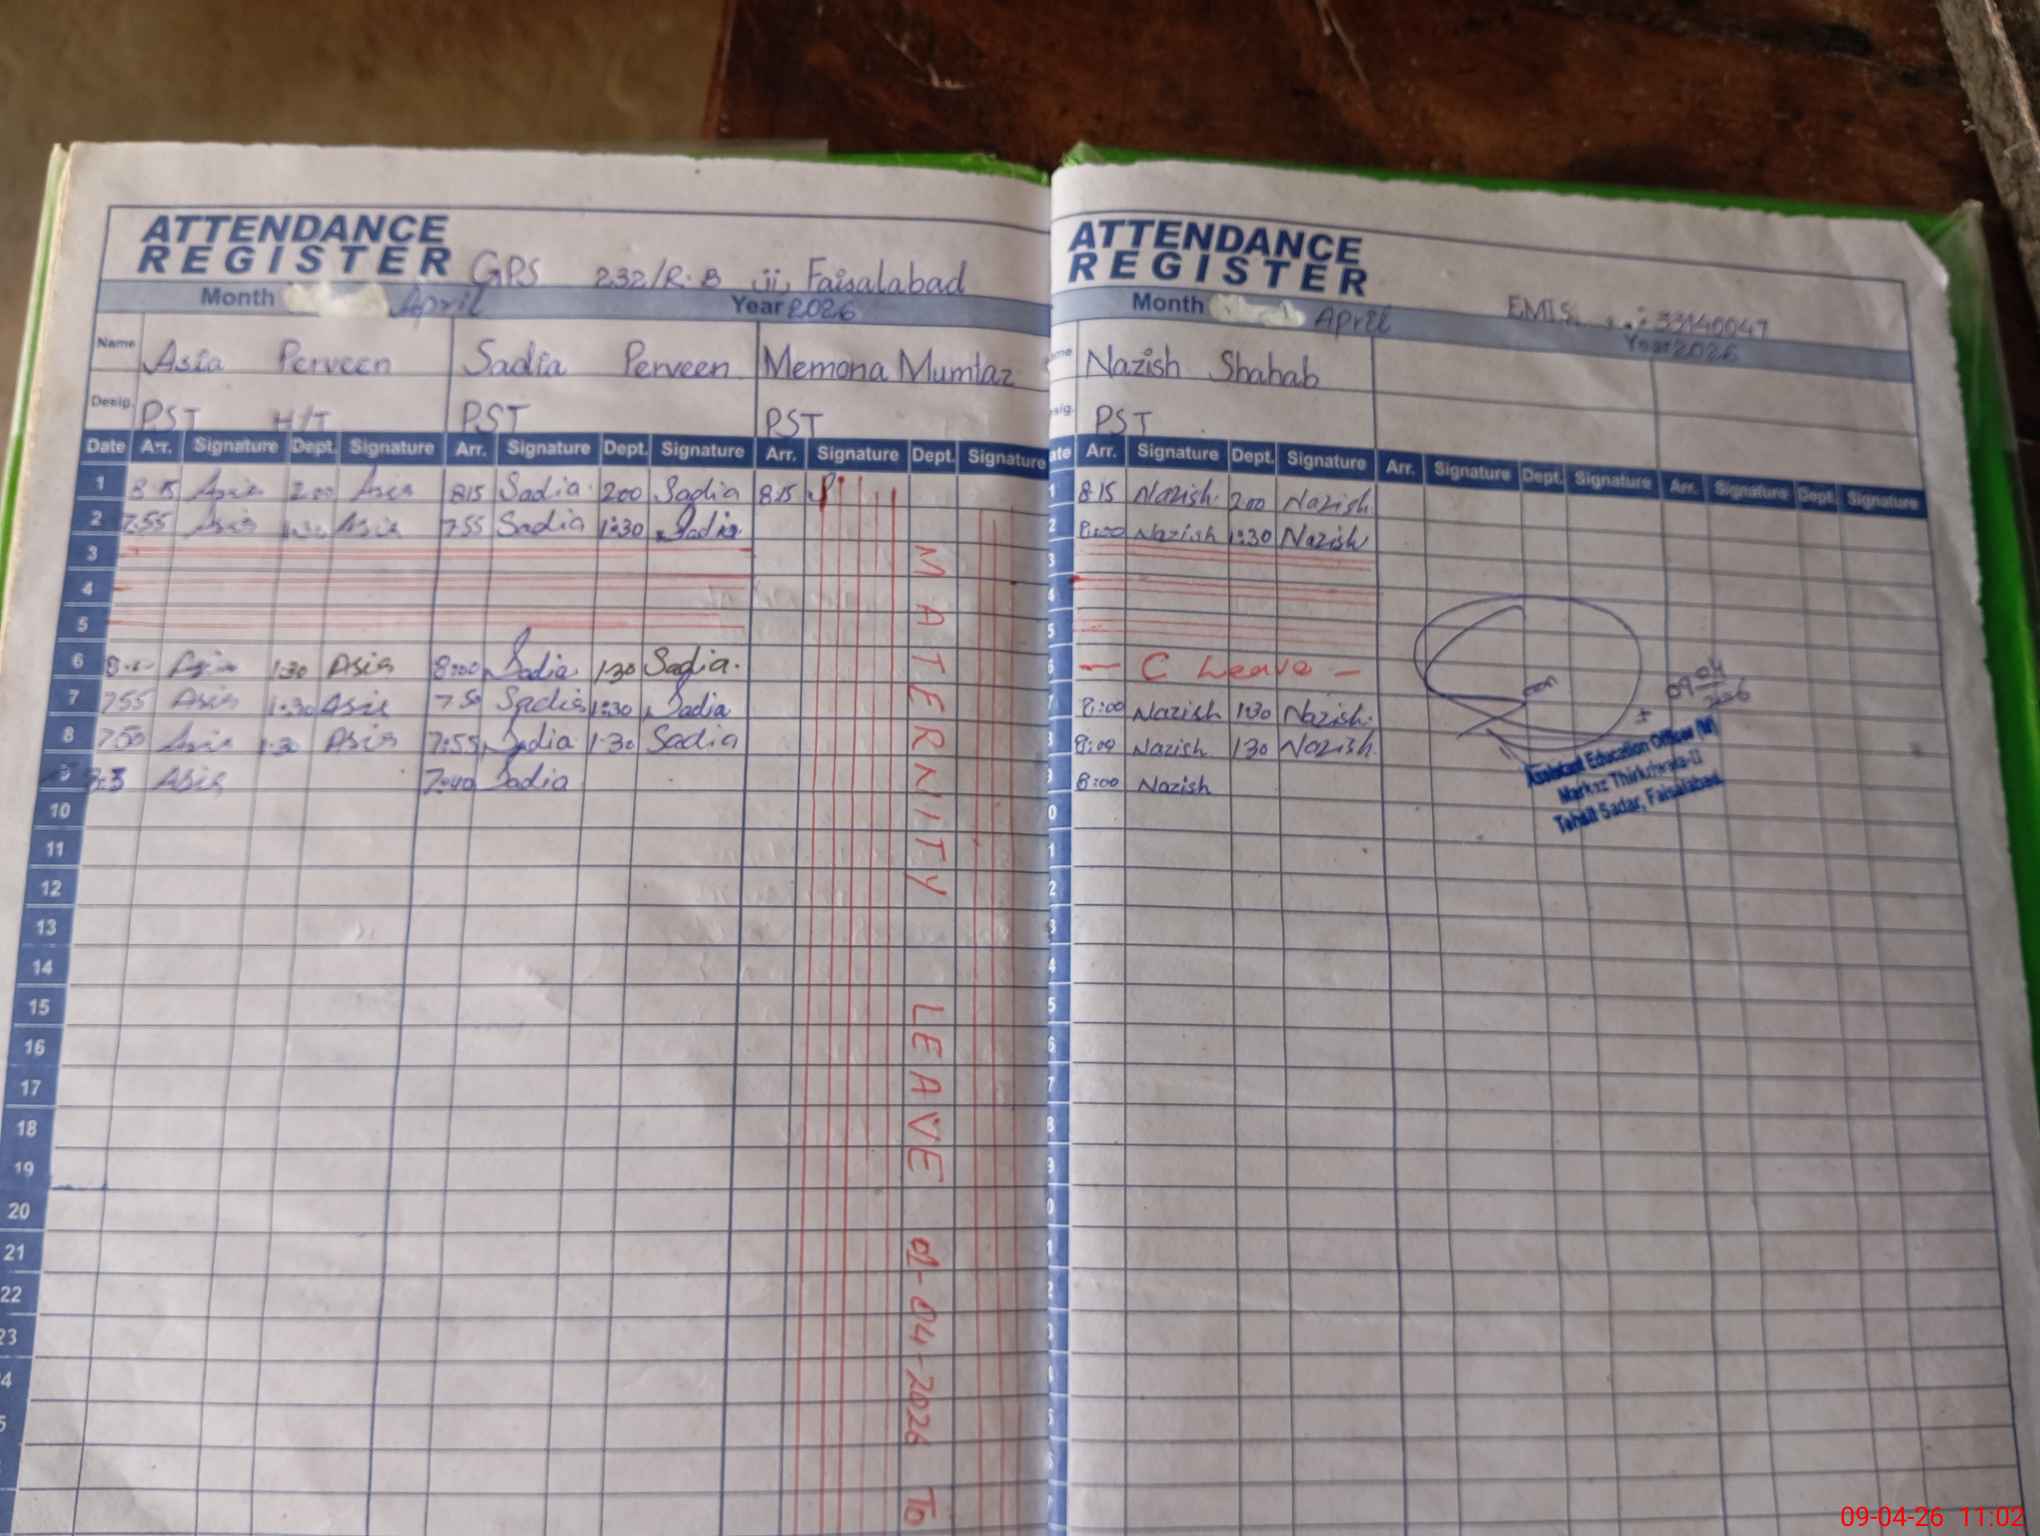 ATTENDANCE
REGISTER GPS 232/R.B ii, Faisalabad
Month April Year 2026
Name Asia Perveen Sadia Perveen Memona Mumtaz
Desig. PST H/T PST PST
Date Arr. Signature Dept. Signature Arr. Signature Dept. Signature Arr. Signature Dept. Signature
1 8 15 Asia 2 00 Asia 815 Sadia 200 Sadia 8:15
2 7.55 Asia 1:30 Asia 755 Sadia 1:30 Sadia
3
4
5
6 Asia 1:30 Asia 8:00 Sadia 1:30 Sadia.
7 755 Asia 1:30 Asia Sadia 1:30 Sadia
8 Asia 1:30 Asia 7:55 Sadia 1:30 Sadia
9 Asia 7:40 Sadia
10
11
12
13
14
15
16
17
18
19
20
21
22
23
MATERNITY LEAVE 01-04-2026 To
ATTENDANCE
REGISTER
Month April EMIS 33140047
Year 2026
Nazish Shahab
PST
Arr. Signature Dept. Signature Arr. Signature Dept. Signature Arr. Signature Dept. Signature
1 815 Nazish 200 Nazish
2 8:00 Nazish 1:30 Nazish
3
4
5
6 - C Leave -
7 8:00 Nazish 130 Nazish
8:00 Nazish 130 Nazish
8:00 Nazish
09-04
2026
Assistant Education Officer (W)
Markaz Thirkriwala-II
Tehsil Sadar, Faisalabad
09-04-26 11:02